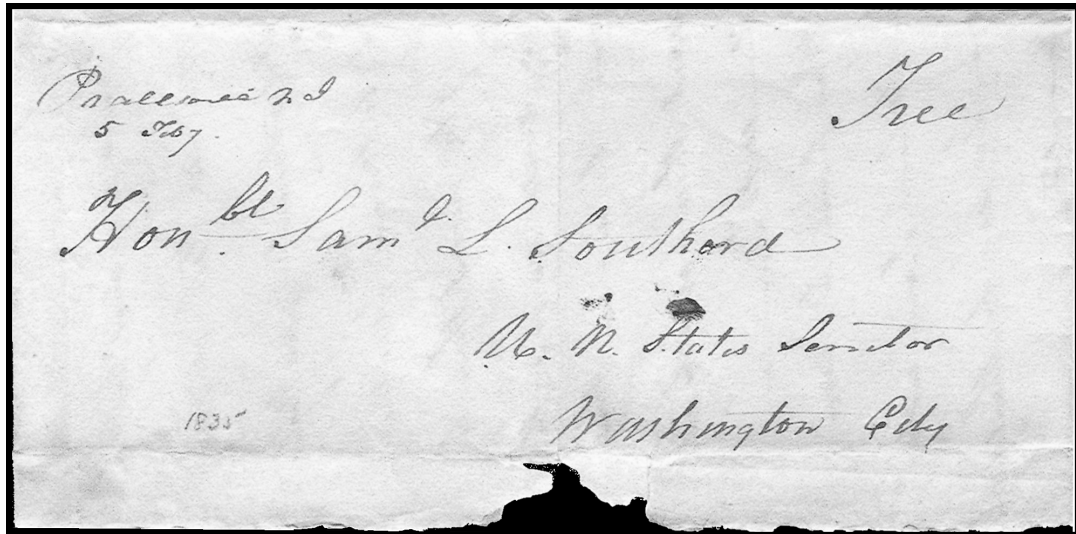 Prallsville N J
5 Feby.
Free
Honble. Saml. L. Southard
U. N. States Senator
Washington City
1835